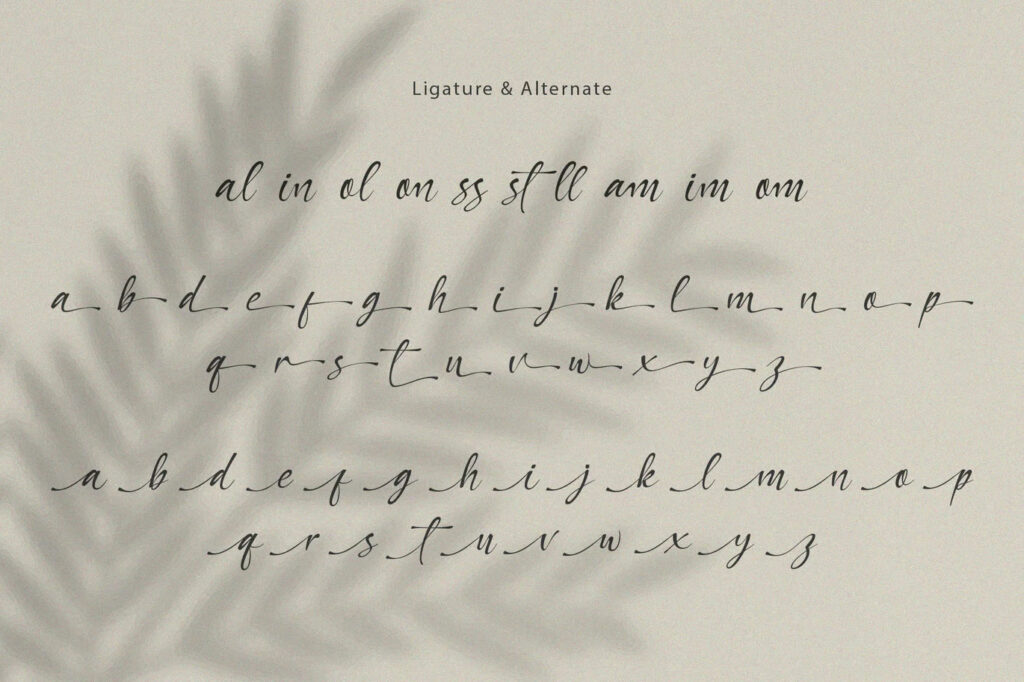 Ligature & Alternate
al in ol on ss st ll am im om
a b d e f g h i j k l m n o p
q r s t u v w x y z
a b d e f g h i j k l m n o p
q r s t u v w x y z